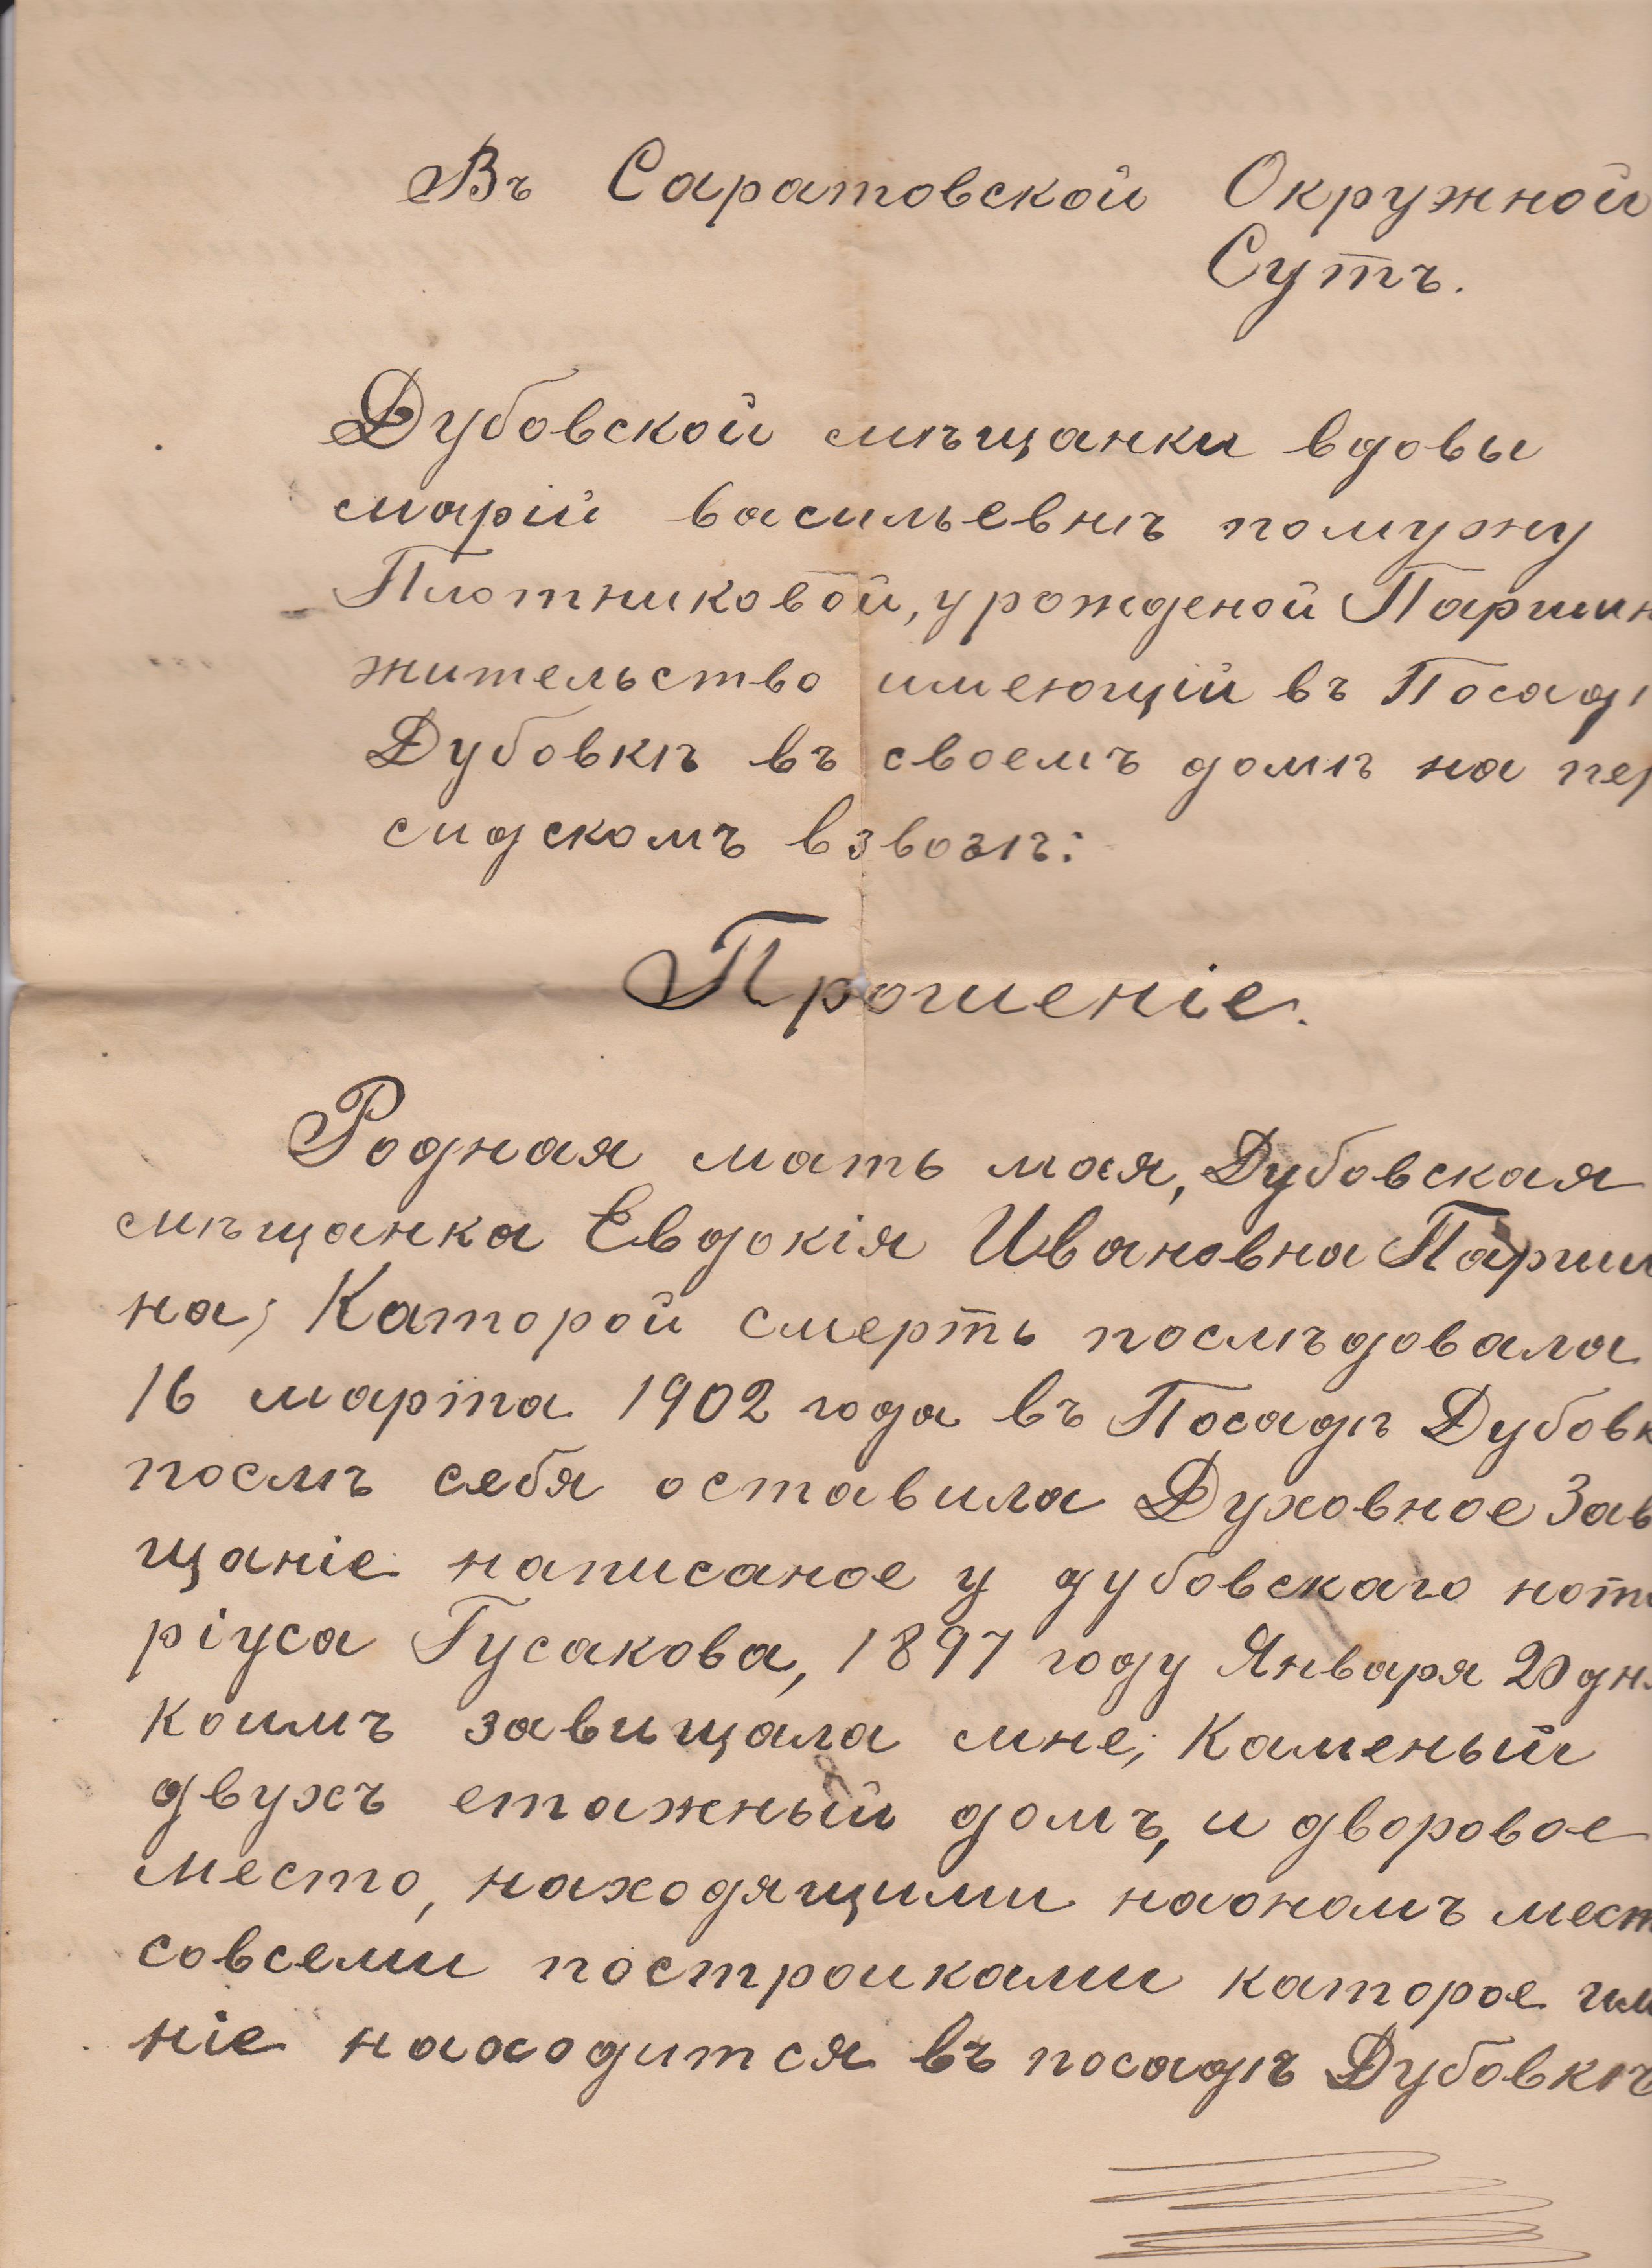 Въ Саратовской Окружной
Сутъ.
Дубовской мѣщанки вдовы
марій васильевнѣ помужу
Плотниковой, урожденой Паршин
жительство имеющій въ Посадѣ
Дубовкѣ въ своемъ домѣ на пер
сидскомъ взвозѣ:
Прошеніе.
Родная мать моя, Дубовская
мѣщанка Евдокія Ивановна Парши
на; Каторой смерть послѣдовала
16 марта 1902 года въ Посадѣ Дубовк
послѣ себя оставила Духовное Зав
щаніе написаное у дубовскаго нота
ріуса Гусакова, 1897 году Января 20 дн
коимъ завищала мне; Каменый
двухъ етажный домъ, и дворовое
место, находящими наономъ мест
совсеми построиками каторое им
ніе находится въ посадѣ Дубовкѣ